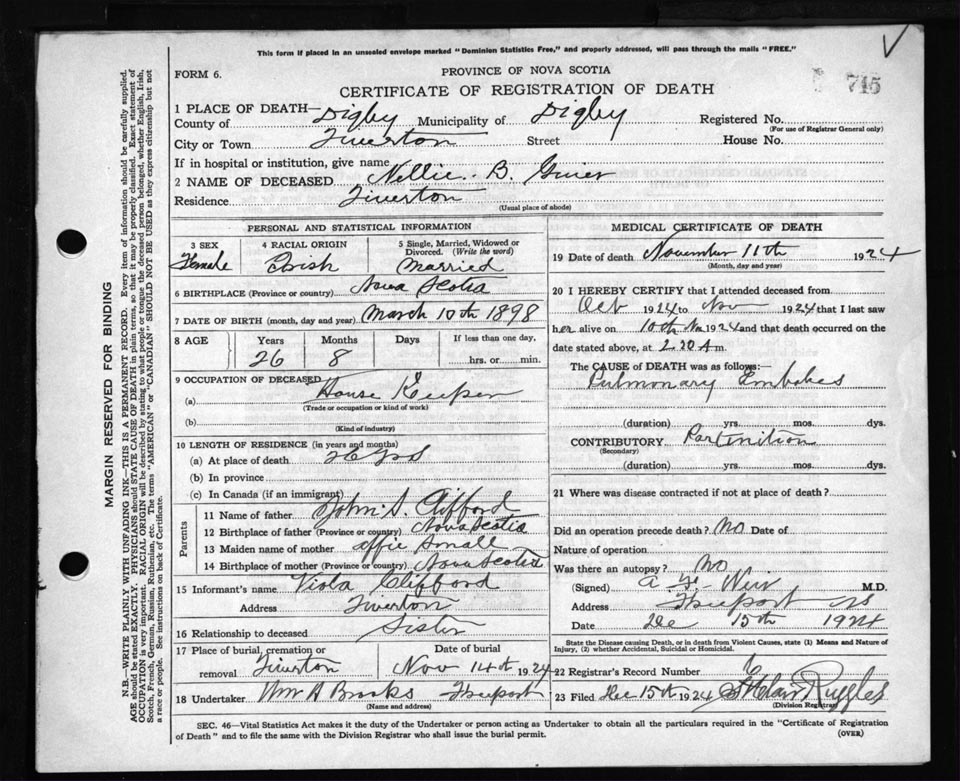 This form if placed in an unsealed envelope marked "Dominion Statistics Free," and properly addressed, will pass through the mails "FREE."
FORM 6.
PROVINCE OF NOVA SCOTIA
745
CERTIFICATE OF REGISTRATION OF DEATH
1 PLACE OF DEATH—
County of Digby Municipality of Digby Registered No.
(For use of Registrar General only)
City or Town Tiverton Street House No.
If in hospital or institution, give name
2 NAME OF DECEASED Nellie B.
Residence Tiverton
(Usual place of abode)
PERSONAL AND STATISTICAL INFORMATION
3 SEX
Female
4 RACIAL ORIGIN
Irish
5 Single, Married, Widowed or
Divorced. (Write the word)
Married
6 BIRTHPLACE (Province or country) Nova Scotia
7 DATE OF BIRTH (month, day and year) March 10th 1898
8 AGE
Years Months Days If less than one day,
26 8 hrs. or min.
9 OCCUPATION OF DECEASED
(a) House Keeper
(Trade or occupation or kind of work)
(b)
(Kind of industry)
10 LENGTH OF RESIDENCE (in years and months)
(a) At place of death 26 yrs
(b) In province
(c) In Canada (if an immigrant)
Parents
11 Name of father John S. Clifford
12 Birthplace of father (Province or country) Nova Scotia
13 Maiden name of mother Effie Small
14 Birthplace of mother (Province or country) Nova Scotia
15 Informant's name Viola Clifford
Address Tiverton
16 Relationship to deceased Sister
17 Place of burial, cremation or Date of burial
removal Tiverton Nov 14th 1924
18 Undertaker Wm H Brooks Freeport
(Name and address)
MEDICAL CERTIFICATE OF DEATH
19 Date of death November 11th 1924
(Month, day and year)
20 I HEREBY CERTIFY that I attended deceased from
Oct 1924 to Nov 1924 that I last saw
her alive on 10th Nov 1924 and that death occurred on
date stated above, at 2.20 A m.
The CAUSE of DEATH was as follows:—
Pulmonary
(duration) yrs. mos. dys.
CONTRIBUTORY
(Secondary)
(duration) yrs. mos. dys.
21 Where was disease contracted if not at place of death?
Did an operation precede death? No Date of
Nature of operation
Was there an autopsy? No
(Signed) Weir M.D.
Address Freeport NS
Date Dec 15th 1924
State the Disease causing Death, or in death from Violent Causes, state (1) Means and Nature of
Injury, (2) whether Accidental, Suicidal or Homicidal.
22 Registrar's Record Number
23 Filed Dec 15th 1924 Ruggles
(Division Registrar)
SEC. 46—Vital Statistics Act makes it the duty of the Undertaker or person acting as Undertaker to obtain all the particulars required in the "Certificate of Registration
of Death" and to file the same with the Division Registrar who shall issue the burial permit.
(OVER)
MARGIN RESERVED FOR BINDING
N.B.—WRITE PLAINLY WITH UNFADING INK—THIS IS A PERMANENT RECORD. Every item of information should be carefully supplied.
AGE should be stated EXACTLY. PHYSICIANS should STATE CAUSE OF DEATH in plain terms, so that it may be properly classified. Exact statement of
OCCUPATION is very important. RACIAL ORIGIN will be described by stating to what people or tongue the deceased person belonged, whether English, Irish,
Scotch, French, German, Russian, Ruthenian, etc. The terms "AMERICAN" or "CANADIAN" SHOULD NOT BE USED as they express citizenship but not
a race or people. See instructions on back of Certificate.